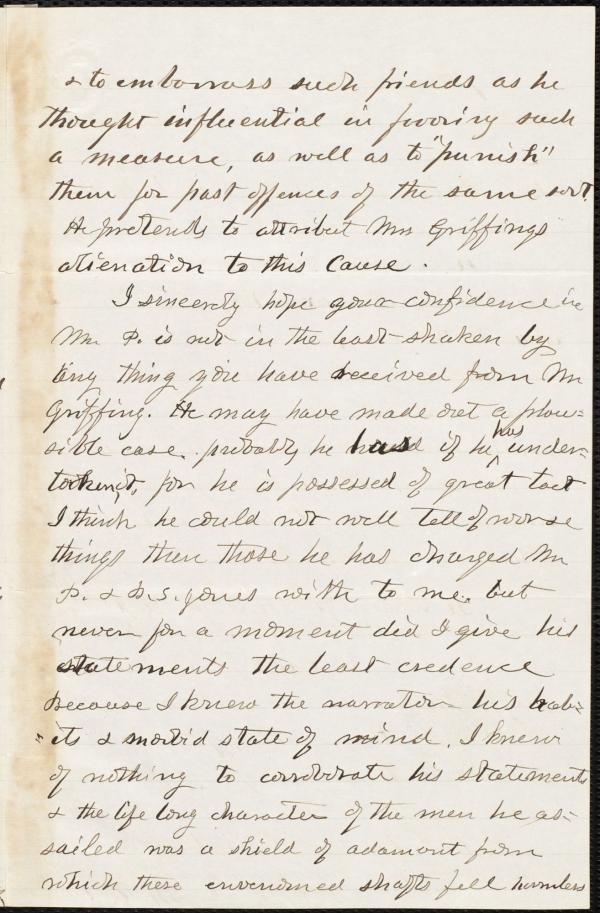 & to embarrass such friends as he
thought influential in favoring such
a measure, as well as to "punish"
them for past offences of the same sort.
He pretends to attribut Mrs Griffings
alienation to this Cause.
I sincerely hope your confidence in
Mr. P. is not in the least shaken by
any thing you have received from Mr
Griffing. He may have made out a plau=
sible case. probably he has if he has under-
taken it, for he is possessed of great tact
I think he could not well tell of worse
things than those he has charged Mr
P. & B.S. Jones with to me. but
never for a moment did I give his
statements the least credence
because I knew the narrator his hab=
its & morbid state of mind. I knew
of nothing to corroborate his statements
& the life long character of the men he as=
sailed was a shield of adamant from
which these envenomed shafts fell harmless